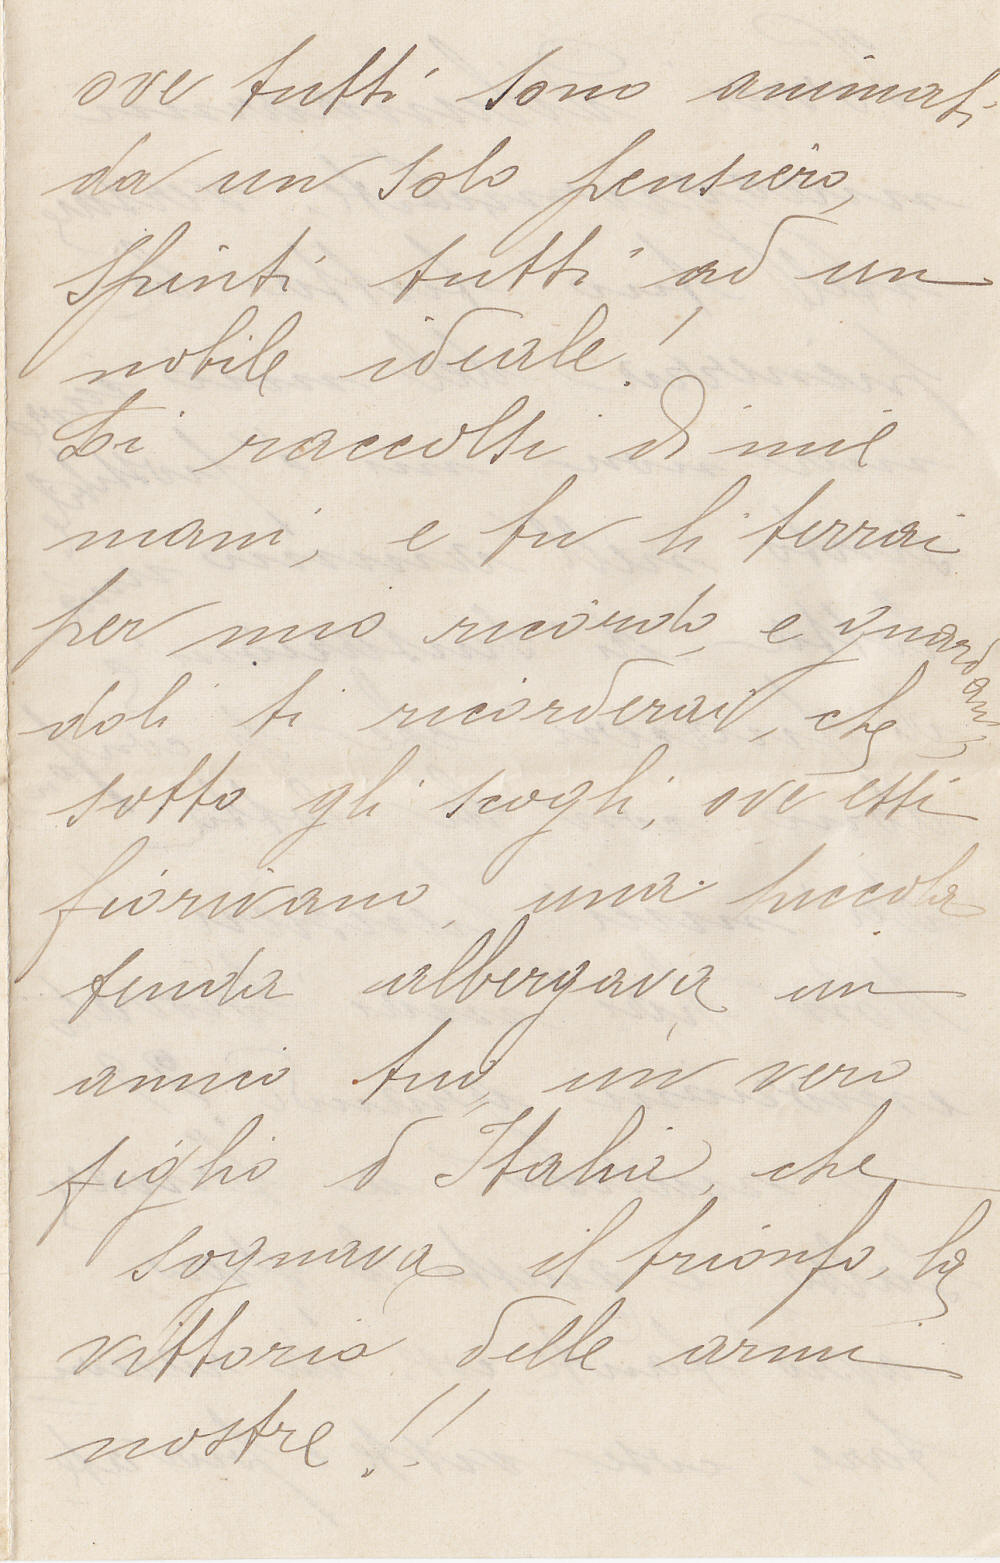 ove tutti sono animati
da un solo pensiero,
spinti tutti ad un
nobile ideale!
Li raccolsi di mie
mani, e tu li terrai
per mio ricordo, e guardan
doli ti ricorderai, che
sotto gli scogli, ove essi
fiorivano, una piccola
tenda albergava un
amico tuo, un vero
figlio d'Italia, che
sognava il trionfo, la
vittoria delle armi
nostre!!